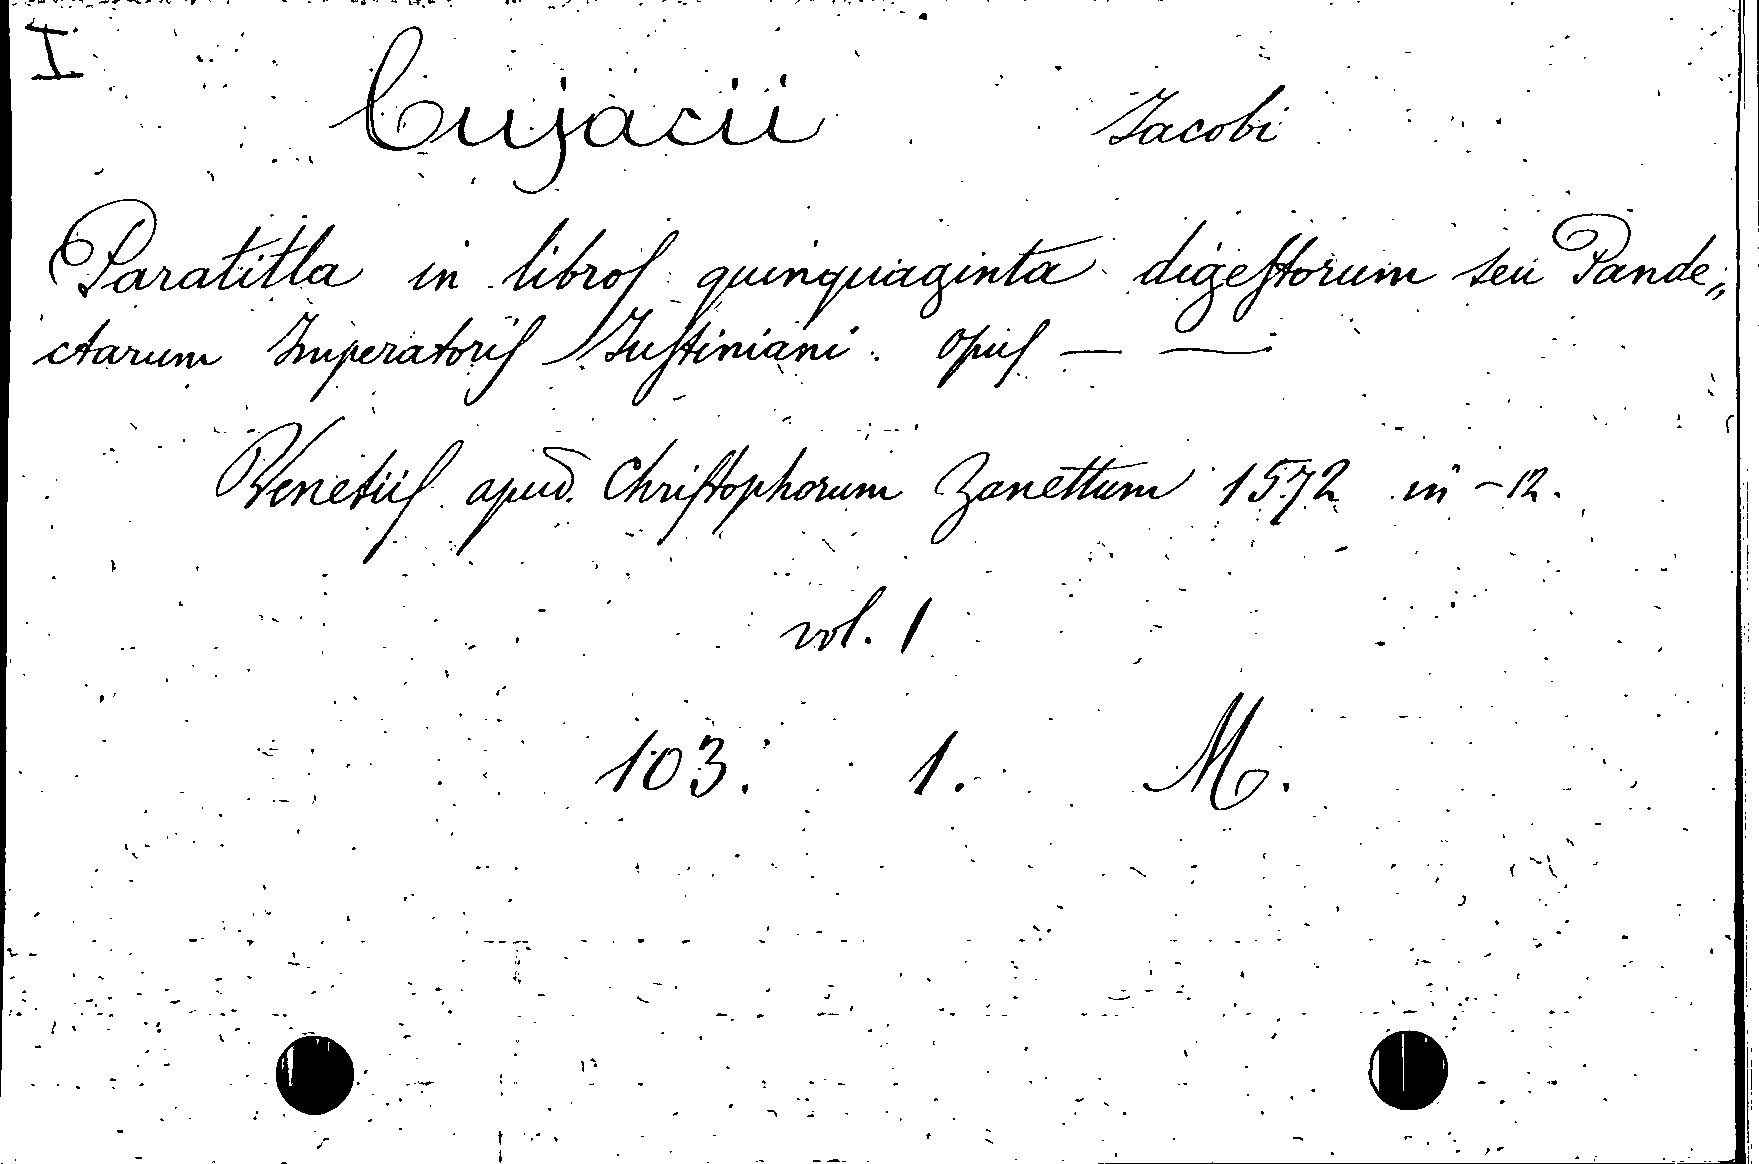 I
Cujacii Jacobi
Paratitla in libroſ quinquaginta digeſtorum seu Pande„
ctarum Imperatoriſ Juſtiniani. Opuſ — —
Venetiiſ apud. Chriſtophorum Zanettum 1572 in -12.
vol. 1
103. 1. M.